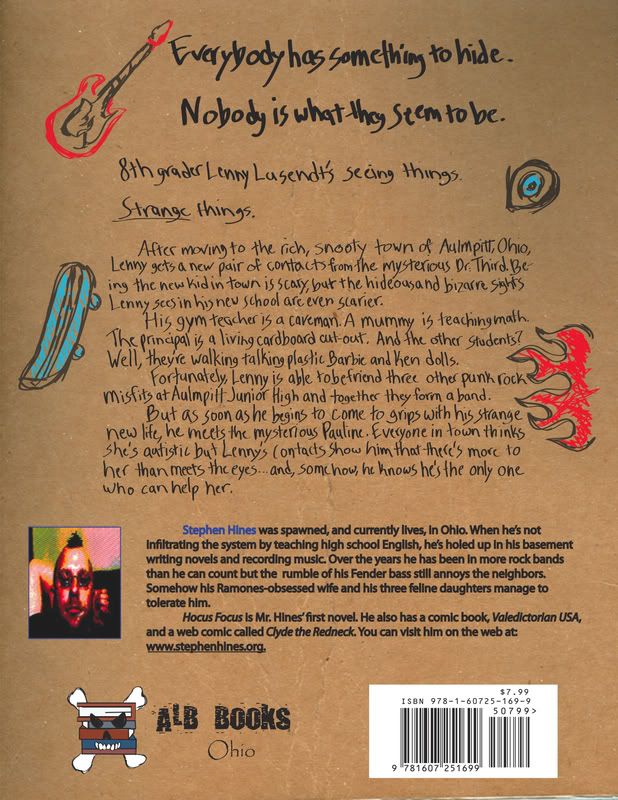 Everybody has something to hide.
Nobody is what they seem to be.
8th grader Lenny Lusendt's seeing things.
Strange things.
After moving to the rich, snooty town of Aulmpitt, Ohio,
Lenny gets a new pair of contacts from the mysterious Dr. Third. Be-
ing the new kid in town is scary, but the hideous and bizarre sights
Lenny sees in his new school are even scarier.
His gym teacher is a caveman. A mummy is teaching math.
The principal is a living cardboard cut-out. And the other students?
Well, they're walking talking plastic Barbie and Ken dolls.
Fortunately, Lenny is able to befriend three other punk rock
misfits at Aulmpitt Junior High and together they form a band.
But as soon as he begins to come to grips with his strange
new life, he meets the mysterious Pauline. Everyone in town thinks
she's autistic but Lenny's contacts show him that there's more to
her than meets the eyes...and, somehow, he knows he's the only one
who can help her.
Stephen Hines was spawned, and currently lives, in Ohio. When he's not
infiltrating the system by teaching high school English, he's holed up in his basement
writing novels and recording music. Over the years he has been in more rock bands
than he can count but the rumble of his Fender bass still annoys the neighbors.
Somehow his Ramones-obsessed wife and his three feline daughters manage to
tolerate him.
Hocus Focus is Mr. Hines' first novel. He also has a comic book, Valedictorian USA,
and a web comic called Clyde the Redneck. You can visit him on the web at:
www.stephenhines.org.
ALB BOOKS
Ohio
$7.99
ISBN 978-1-60725-169-9
50799>
9 781607 251699